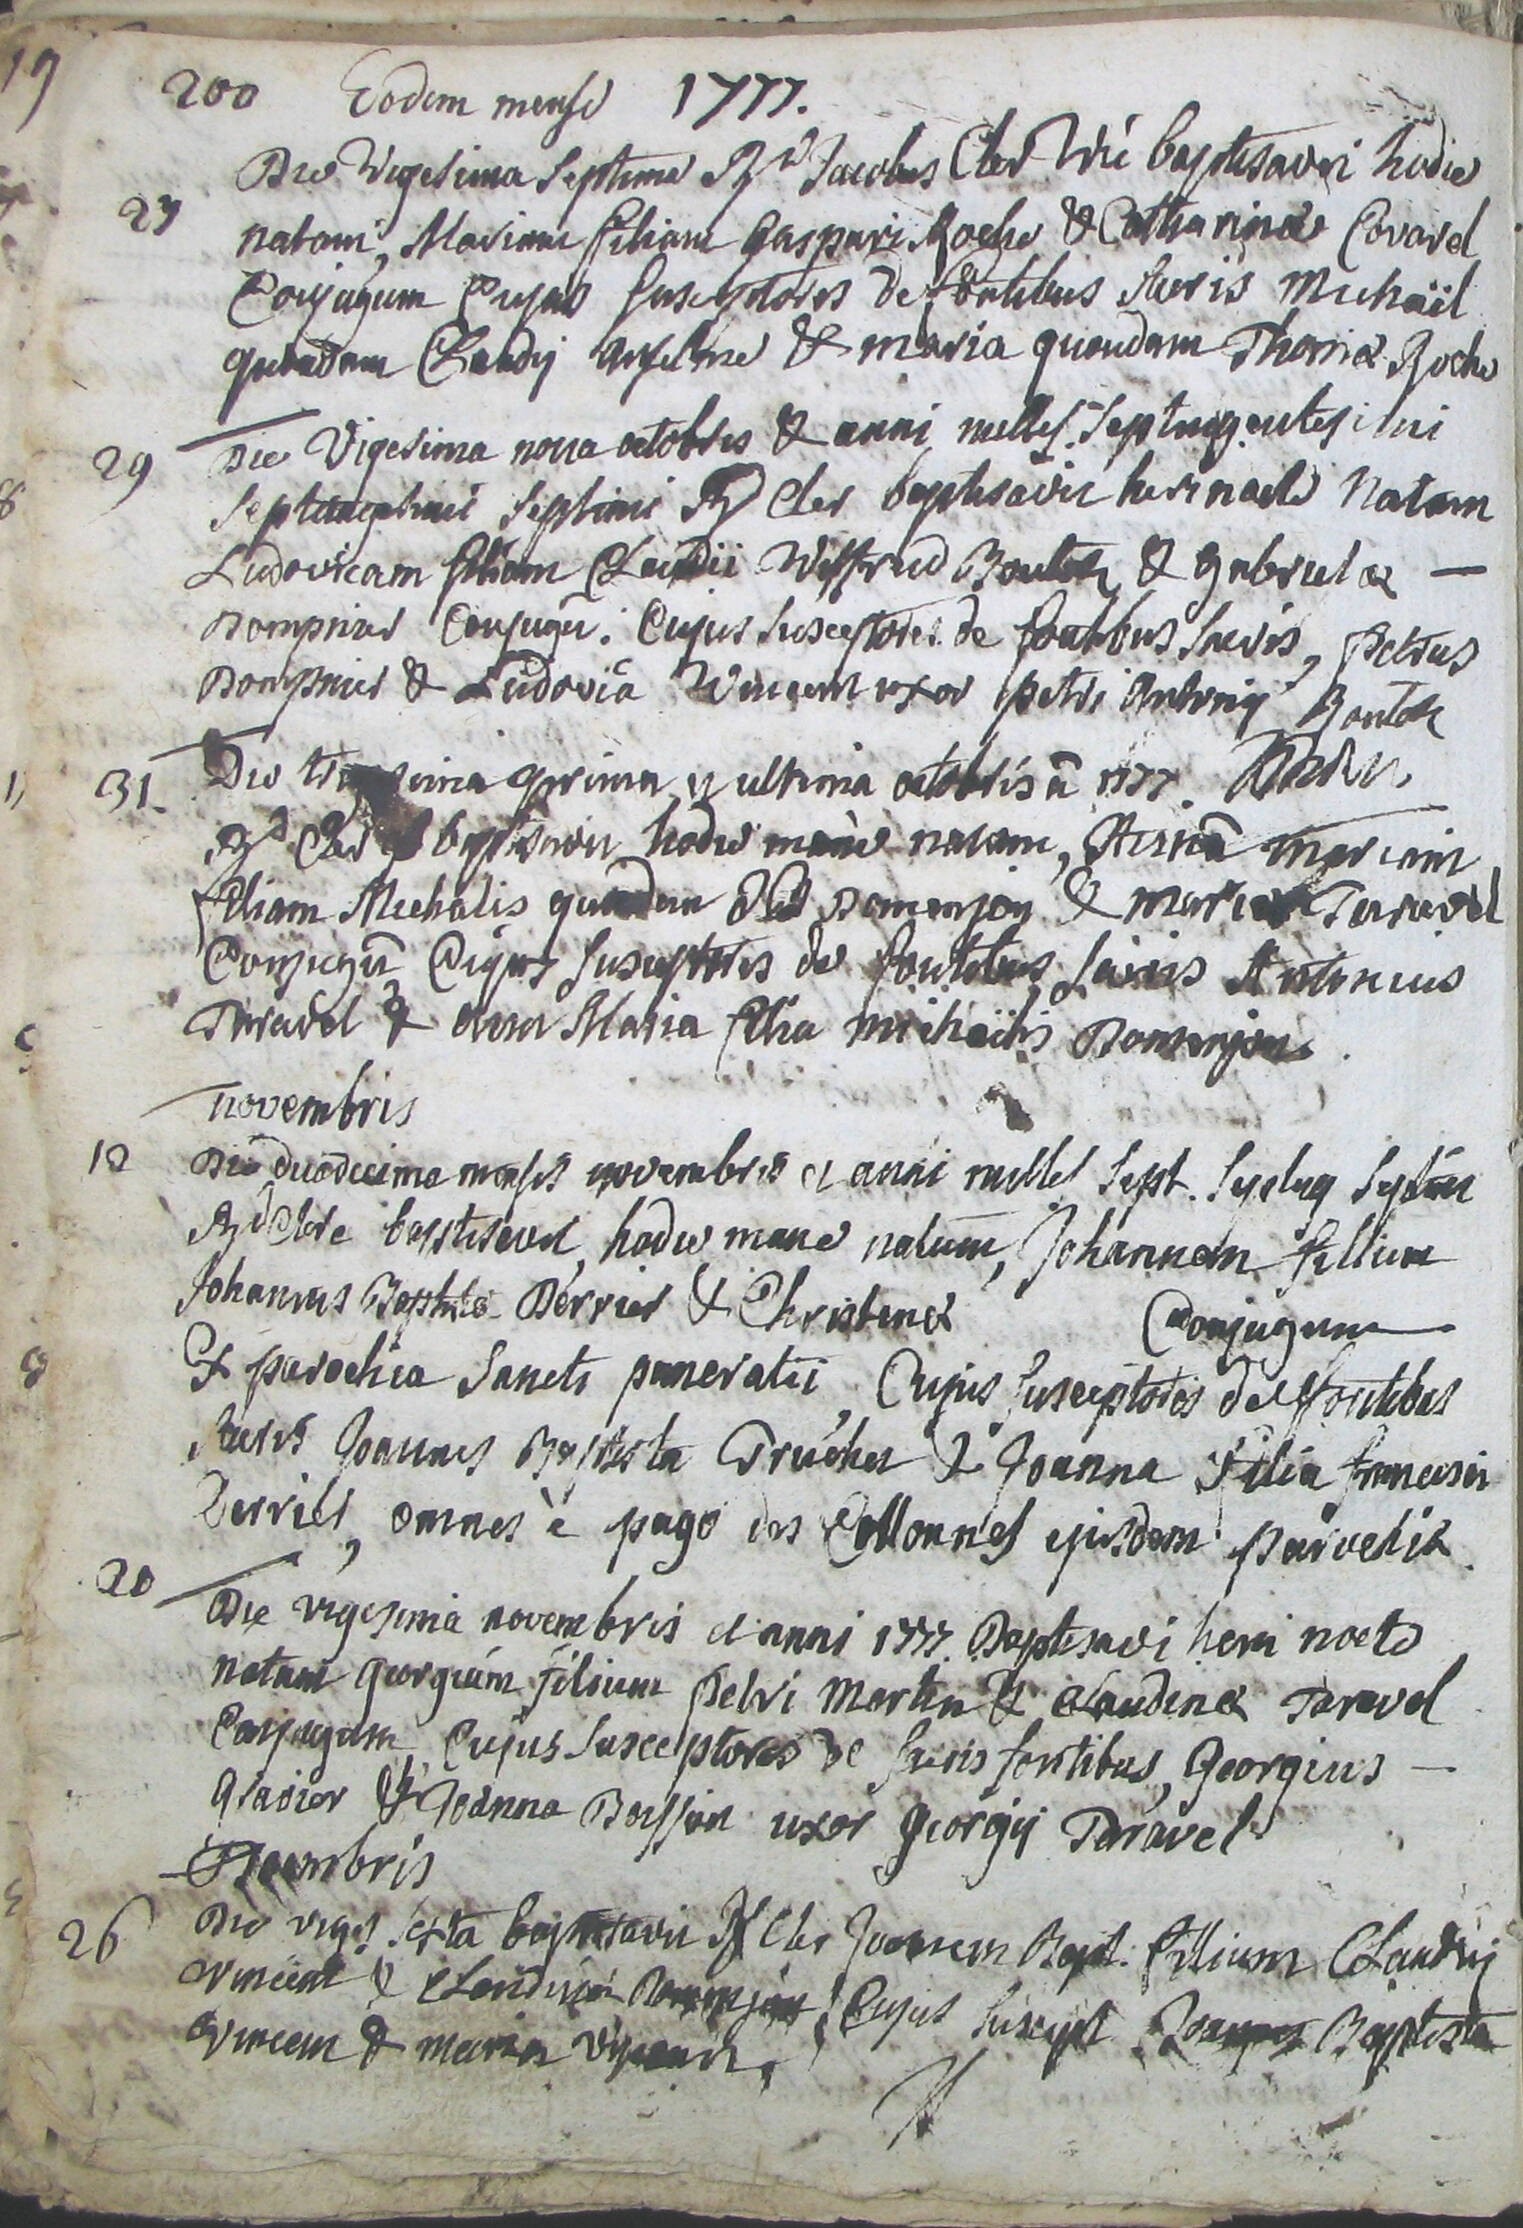 200 Eodem mense 1777.
27 Die Vigesima Septima Rd Jacobus Cler Vic baptisavi hodie
natam, Mariam filiam Gaspari Roche & Catharinæ Covarel
Conjugum Cujus Susceptores de fontibus Sacris Michaël
quondam Claudij Anselme & maria quondam Thomæ Roche
29 Die Vigesima nona octobris & anni milles. Septingentesimi
Septuagesimi Septimi Rd Cler baptisavit heri nocte Natam
Ludovicam filiam Claudii Boutoz & Gabrielæ —
Dompnier Conjugū. Cujus Susceptores de fontibus Sacris, Petrus
Dompnier & Ludovica Vincent uxor petri Antonij Boutoz
31. Die trigesima prima et ultima octobris ā 1777.
Rd Cler baptisavit hodie mane natam, Annā Mariam
filiam Michælis quondam Domenjon & Mariæ Taravel
Conjugū Cujus Susceptores de fontibus Sacris Antonius
Taravel & Anna Maria filia michaëlis Domenjon.
novembris
12 Die duodecima mensis novembris et anni milles Sept. Septuag Septim
Rd Cler baptisavit, hodie mane natum, Johannem fillium
Johannis Baptistæ Perrier & Christinæ Conjugum
Ex parochia Sancti pancratii, Cujus Susceptores de fontibus
Sacris Joannes Baptista Truchet & Joanna filia francisci
Perrier, omnes è pago des Collonnes ejusdem parochiæ.
20 Die vigesima novembris et anni 1777. Baptisavi heri nocte
natum georgium filium petri Martin & claudinæ Taravel
Conjugum, Cujus Susceptores de Sacris fontibus, Georgius —
Gravier & Joanna Bouffon uxor georgij Taravel
Decembris
26 Die viges. Sexta baptisavit Rd Cler Joannem Bapt. fillium Claudij
vincent & Claudinæ Domenjon, Cujus Suscept. Joannes Baptista
vincent & maria vincent.